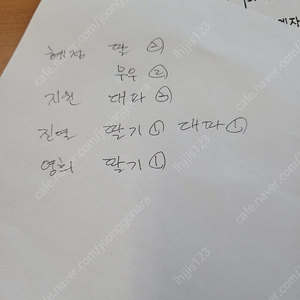 혜정 딸 ②
무우 ②
지원 대파 ③
진열 딸기 ① 대파 ①
영희 딸기 ①
cafe.naver.com/joonggonara
ihjis123